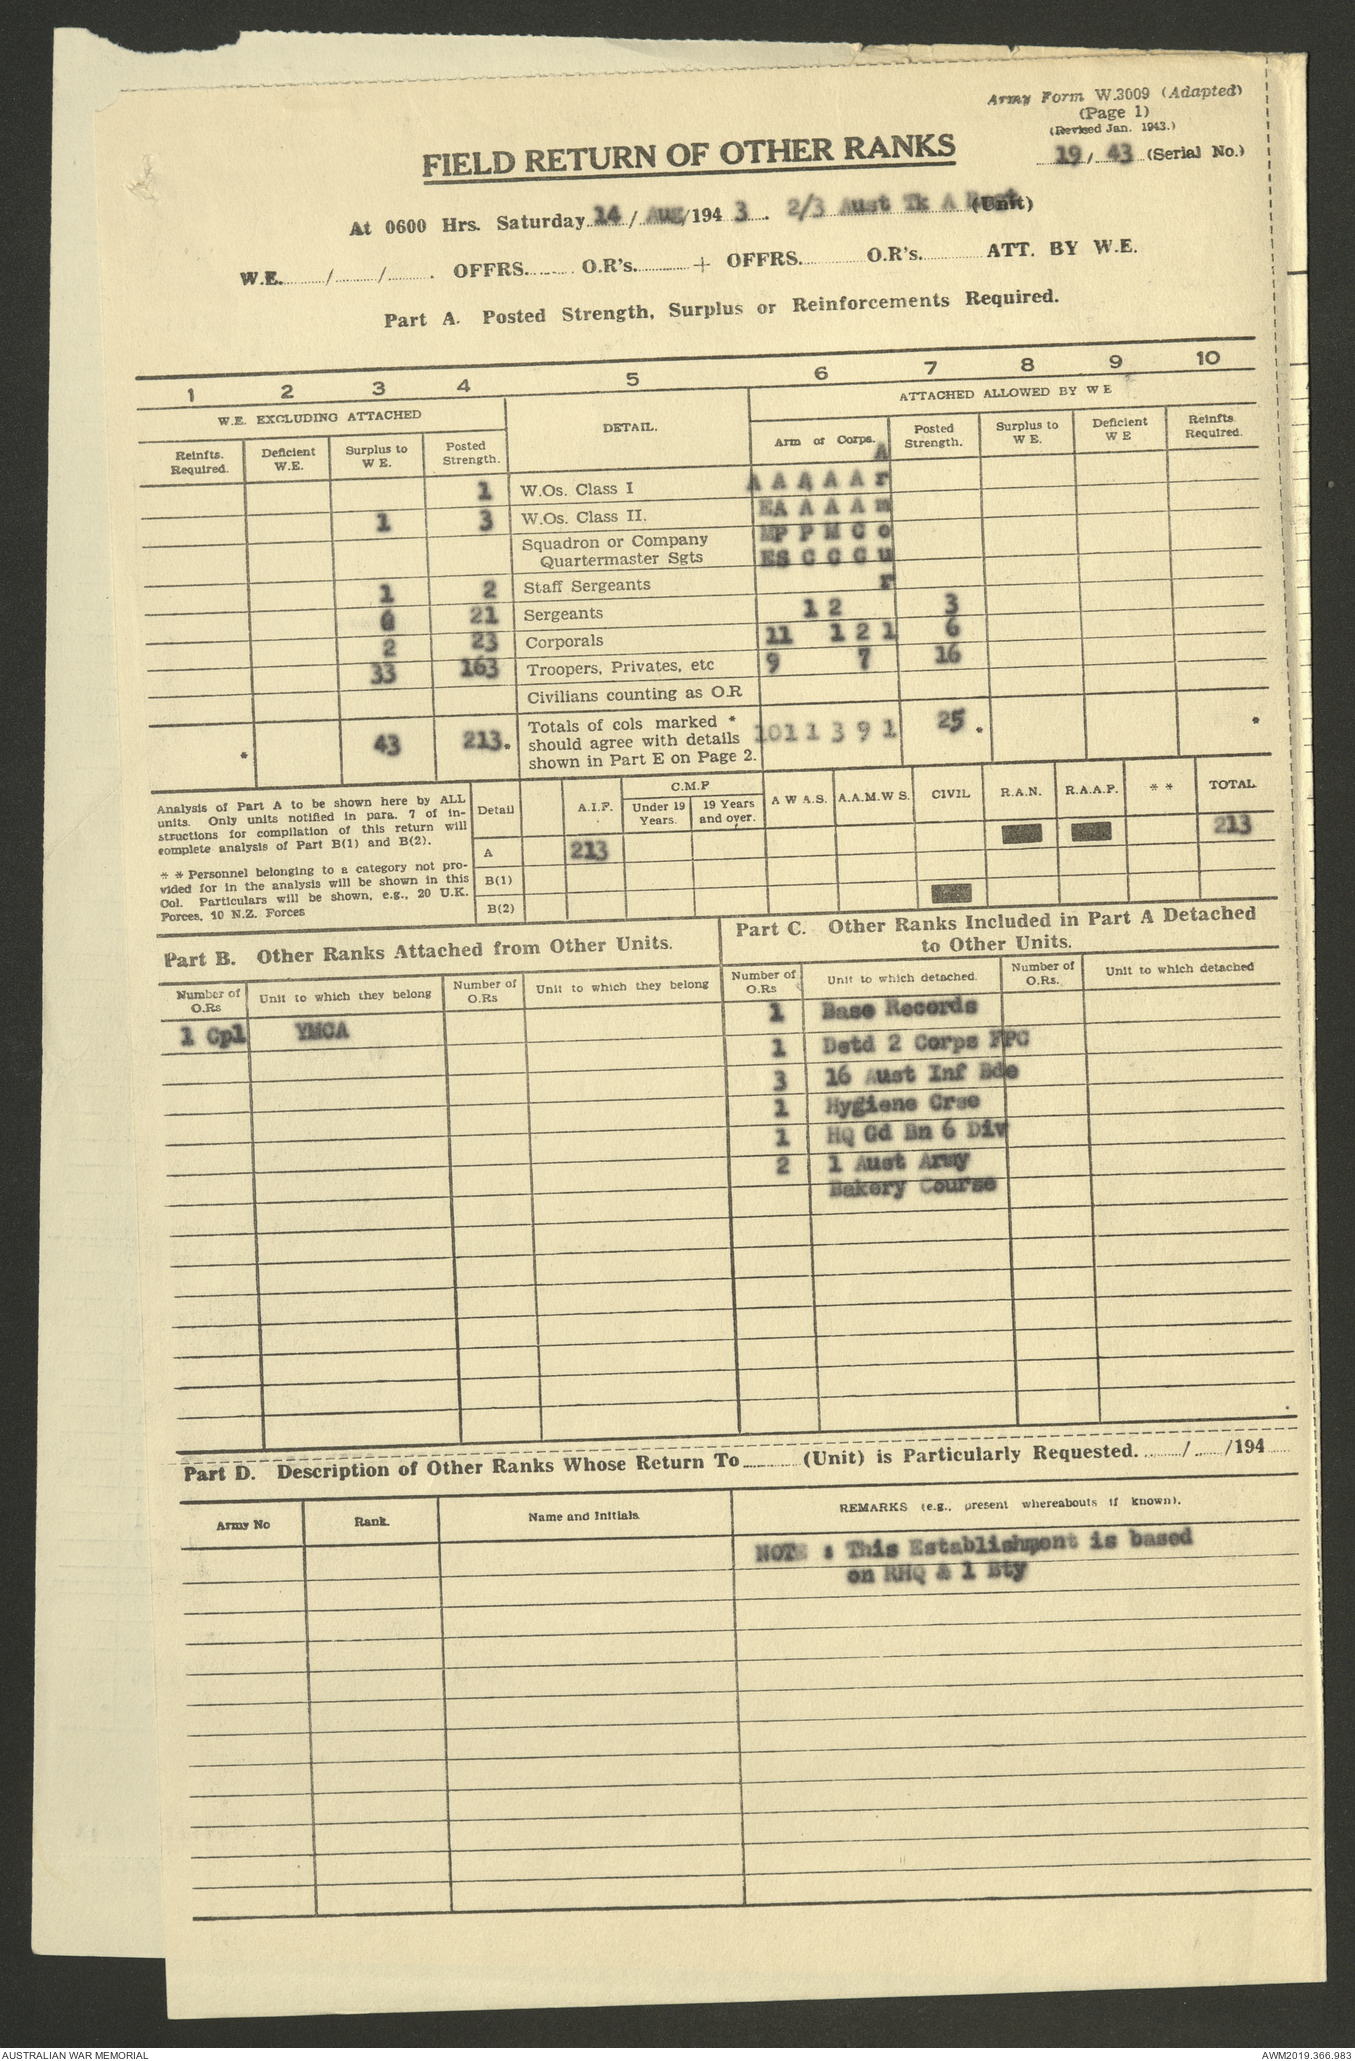 Army Form W.3009 (Adapted)
(Page 1)
(Revised Jan. 1943.)
19/ 43 (Serial No.)
FIELD RETURN OF OTHER RANKS
At 0600 Hrs. Saturday 14 / Aug/194 3 . 2/3 Aust Tk A Regt (Unit)
W.E. / / . OFFRS. O.R's. + OFFRS. O.R's. ATT. BY W.E.
Part A. Posted Strength, Surplus or Reinforcements Required.
1 2 3 4 5 6 7 8 9 10
W.E. EXCLUDING ATTACHED DETAIL. ATTACHED ALLOWED BY W E
Reinfts. Required. Deficient W.E. Surplus to W E. Posted Strength. Arm or Corps. Posted Strength. Surplus to W E. Deficient W E Reinfts. Required.
A
1 W.Os. Class I A A A A A r
1 3 W.Os. Class II. EA A A A m
Squadron or Company MP P M C o
Quartermaster Sgts ES C C C u
1 2 Staff Sergeants r
21 Sergeants 1 2 3
2 23 Corporals 11 1 2 1 6
33 163 Troopers, Privates, etc 9 7 16
Civilians counting as O.R
Totals of cols marked *
* 43 213 * should agree with details 1011 3 9 1 25 * *
shown in Part E on Page 2.
Analysis of Part A to be shown here by ALL
units. Only units notified in para. 7 of in-
structions for compilation of this return will
complete analysis of Part B(1) and B(2).
* * Personnel belonging to a category not pro-
vided for in the analysis will be shown in this
Col. Particulars will be shown, e.g., 20 U.K.
Forces, 10 N.Z. Forces
Detail A.I.F. C.M.F Under 19 Years. 19 Years and over. A W A.S. A.A.M.W S. CIVIL R.A.N. R.A.A.F. * * TOTAL
A 213 213
B(1)
B(2)
Part B. Other Ranks Attached from Other Units.
Number of O.Rs Unit to which they belong Number of O.Rs Unit to which they belong
1 Cpl YMCA
Part C. Other Ranks Included in Part A Detached
to Other Units.
Number of O.Rs Unit to which detached. Number of O.Rs. Unit to which detached
1 Base Records
1 Detd 2 Corps FPC
3 16 Aust Inf Bde
1 Hygiene Crse
1 HQ Gd Bn 6 Div
2 1 Aust Army
Bakery Course
Part D. Description of Other Ranks Whose Return To (Unit) is Particularly Requested. / /194
Army No Rank. Name and Initials. REMARKS (e.g., present whereabouts if known).
NOTE : This Establishment is based
on RHQ & 1 Bty
AUSTRALIAN WAR MEMORIAL
AWM2019.366.983